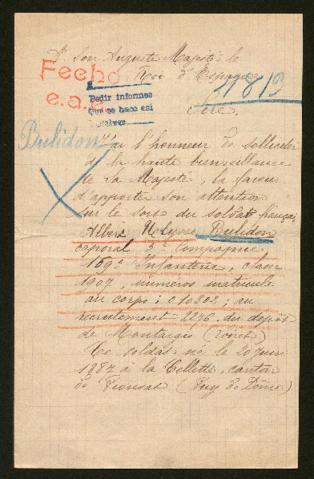 A Son Auguste Majesté le
Roi d'Espagne
Fecho
e.a.
11813
Pedir informes
que se hace así
Sire,
Bulidon
J'ai l'honneur de solliciter
de la haute bienveillance
de Sa Majesté, la faveur
d'apporter son attention
sur le sort du soldat français
Albert Bulidon
caporal 5e Compagnie
169e Infanterie, classe
1907, numéros matricule
au corps: 01.0202; au
recrutement 2296 du dépôt
de Montargis (Loiret)
Ce soldat né le 20 juin
1887 à la Cellette, canton
de Pionsat (Puy de Dôme)